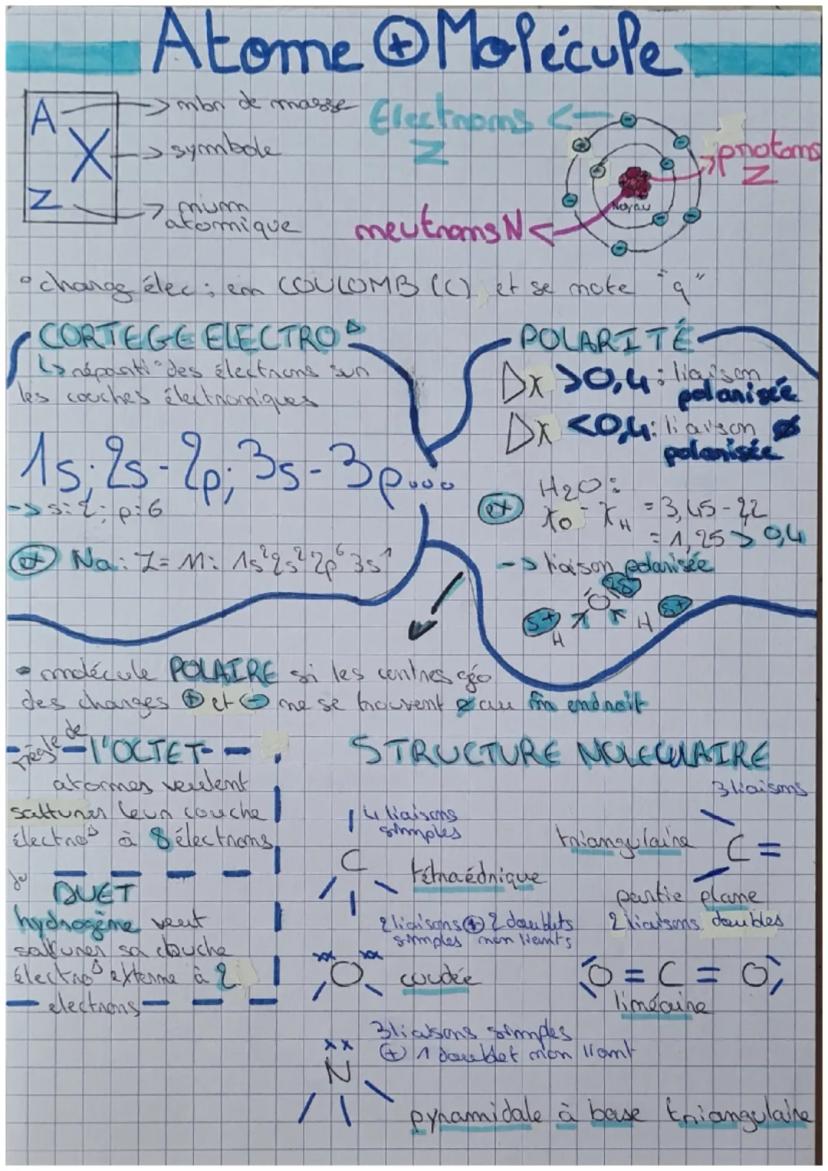 Atome ⊕ Molécule
A → mbr de masse
X → symbole
Z → num atomique
Electrons Z
protons Z
Noyau
neutrons N
• charge élec : en COULOMB (C) et se note "q"
CORTEGE ELECTRO
↳ réparti° des électrons sur
les couches électroniques
1s ; 2s - 2p ; 3s - 3p....
-> s : 2 ; p : 6
ex Na : Z = 11 : 1s² 2s² 2p⁶ 3s¹
POLARITÉ
Δχ > 0,4 : liaison
polarisée
Δχ < 0,4 : liaison ∅
polarisée
ex H₂O :
χO - χH = 3,45 - 2,2
= 1,25 > 0,4
-> liaison polarisée
2δ-
O
δ+ H H δ+
• molécule POLAIRE si les centres géo
des charges ⊕ et ⊖ ne se trouvent ∅ au m̂ endroit
règle de
l'OCTET
atomes veulent
satturer leur couche
électro à 8 électrons
du
DUET
hydrogène veut
satturer sa couche
électro externe à 2
electrons
STRUCTURE MOLECULAIRE
4 liaisons
simples
C
tétraédrique
3 liaisons
triangulaire
C =
partie plane
2 liaisons ⊕ 2 doublets
simples non liants
O
coudée
2 liaisons doubles
O = C = O
linéaire
3 liaisons simples
⊕ 1 doublet non liant
N
pyramidale à base triangulaire